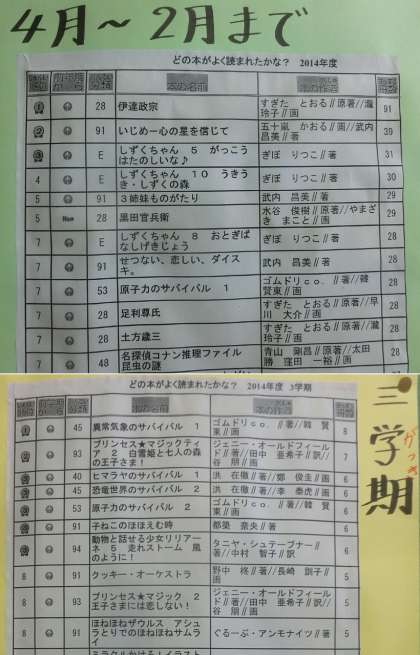 4月〜2月まで
どの本がよく読まれたかな? 2014年度
本の名前
28 伊達政宗 すぎた とおる∥原著∥瀧 玲子∥画 91
91 いじめー心の星を信じて 五十嵐 かおる∥画∥武内 昌美∥著 39
E しずくちゃん 5 がっこうはたのしいな♪ ぎぼ りつこ∥著 31
4 E しずくちゃん 10 うきうき・しずくの森 ぎぼ りつこ∥著 30
5 91 3姉妹ものがたり 武内 昌美∥著 29
5 New 28 黒田官兵衛 水谷 俊樹∥原著∥やまざき まこと∥画 29
7 E しずくちゃん 8 おとぎばなしげきじょう ぎぼ りつこ∥著 28
7 91 せつない、悲しい、ダイスキ。 武内 昌美∥著 28
7 53 原子力のサバイバル 1 ゴムドリco.∥著∥韓 賢東∥画 28
7 28 足利尊氏 すぎた とおる∥原著∥早川 大介∥画 28
7 28 土方歳三 すぎた とおる∥原著∥瀧 玲子∥画 28
7 48 名探偵コナン推理ファイル 昆虫の謎 青山 剛昌∥原著∥太田 勝 窪田 一裕∥画 28
どの本がよく読まれたかな? 2014年度 3学期
三学期
がっき
45 異常気象のサバイバル 1 ゴムドリco.∥著∥韓 賢東∥画 8
93 プリンセス★マジックティア 2 白雪姫と七人の森の王子さま! ジェニー・オールドフィールド∥著∥田中 亜希子∥訳∥谷 朋∥画 7
40 ヒマラヤのサバイバル 1 洪 在徹∥著∥鄭 俊圭∥画 6
45 恐竜世界のサバイバル 2 洪 在徹∥著∥李 泰虎∥画 6
53 原子力のサバイバル 2 ゴムドリco.∥著∥韓 賢東∥画 6
91 子ねこのほほえむ時 都築 奈央∥著 6
94 動物と話せる少女リリアーネ 5 走れストーム 風のように! タニヤ・シュテーブナー∥著∥中村 智子∥訳 6
8 91 クッキー・オーケストラ 野中 柊∥著∥長崎 訓子∥画 5
8 93 プリンセス★マジック 2 王子さまには恋しない! ジェニー・オールドフィールド∥著∥田中 亜希子∥訳∥谷 朋∥画 5
8 91 ほねほねザウルス アシュラとりでのほねほねサムライ ぐるーぷ・アンモナイツ∥著 5